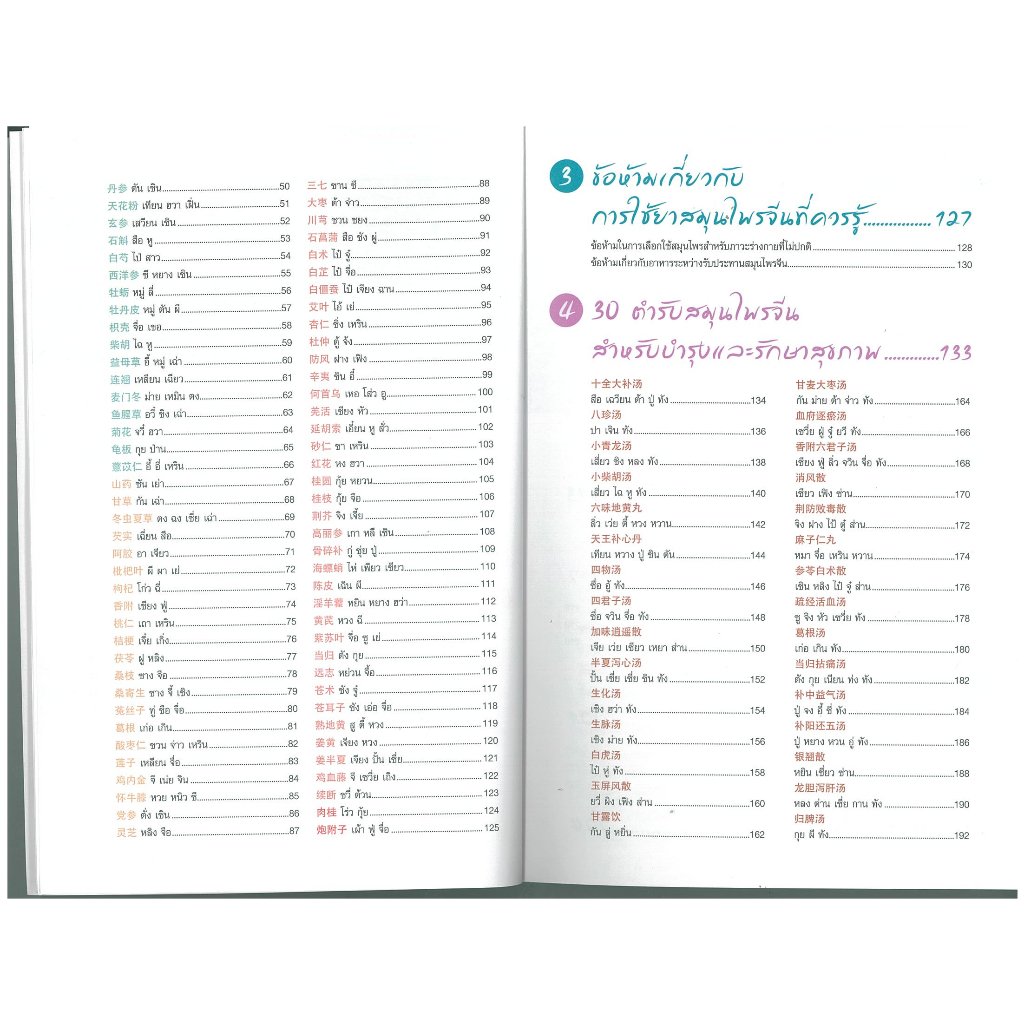 丹参 ตัน เซิน 50
天花粉 เทียน ฮวา เฝิ่น 51
玄参 เสวียน เซิน 52
石斛 สือ หู 53
白芍 ไป๋ สาว 54
西洋参 ซี หยาง เซิน 55
牡蛎 หมู่ ลี่ 56
牡丹皮 หมู่ ตัน ผี 57
枳壳 จื่อ เขอ 58
柴胡 ไฉ หู 59
益母草 อี้ หมู่ เฉ่า 60
连翘 เหลียน เฉียว 61
麦门冬 ม่าย เหมิน ตง 62
鱼腥草 อวี๋ ซิง เฉ่า 63
菊花 จวี๋ ฮวา 64
龟板 กุย ป่าน 65
薏苡仁 อี้ อี่ เหริน 66
山药 ซัน เย่า 67
甘草 กัน เฉ่า 68
冬虫夏草 ตง ฉง เซี่ย เฉ่า 69
芡实 เฉี่ยน สือ 70
阿胶 อา เจียว 71
枇杷叶 ผี ผา เย่ 72
枸杞 โก่ว ฉี่ 73
香附 เซียง ฟู่ 74
桃仁 เถา เหริน 75
桔梗 เจี๋ย เกิ่ง 76
茯苓 ฝู หลิง 77
桑枝 ซาง จือ 78
桑寄生 ซาง จี้ เซิง 79
菟丝子 ทู่ ซือ จื่อ 80
葛根 เก๋อ เกิน 81
酸枣仁 ซวน จ่าว เหริน 82
莲子 เหลียน จื่อ 83
鸡内金 จี เน่ย จิน 84
怀牛膝 หวย หนิว ซี 85
党参 ตั่ง เซิน 86
灵芝 หลิง จือ 87
三七 ซาน ชี 88
大枣 ต้า จ่าว 89
川芎 ชวน ซยง 90
石菖蒲 สือ ชัง ผู่ 91
白术 ไป๋ จู๋ 92
白芷 ไป๋ จื่อ 93
白僵蚕 ไป๋ เจียง ฉาน 94
艾叶 ไอ้ เย่ 95
杏仁 ซิ่ง เหริน 96
杜仲 ตู้ จ้ง 97
防风 ฝาง เฟิง 98
辛夷 ซิน อี๋ 99
何首乌 เหอ โส่ว อู 100
羌活 เชียง หัว 101
延胡索 เอี๋ยน หู สั่ว 102
砂仁 ชา เหริน 103
红花 หง ฮวา 104
桂圆 กุ้ย หยวน 105
桂枝 กุ้ย จือ 106
荆芥 จิง เจี้ย 107
高丽参 เกา หลี เซิน 108
骨碎补 กู่ ซุ่ย ปู่ 109
海螵蛸 ไห่ เพียว เซียว 110
陈皮 เฉิน ผี 111
淫羊藿 หยิน หยาง ฮว่า 112
黄芪 หวง ฉี 113
紫苏叶 จื่อ ซู เย่ 114
当归 ตัง กุย 115
远志 หย่วน จื้อ 116
苍术 ชัง จู๋ 117
苍耳子 ชัง เอ๋อ จื่อ 118
熟地黄 สู ตี้ หวง 119
姜黄 เจียง หวง 120
姜半夏 เจียง ปั้น เซี่ย 121
鸡血藤 จี เซวี่ย เถิง 122
续断 ซวี่ ต้วน 123
肉桂 โร่ว กุ้ย 124
炮附子 เผ้า ฟู่ จื่อ 125
3 ข้อห้ามเกี่ยวกับ
การใช้ยาสมุนไพรจีนที่ควรรู้ 127
ข้อห้ามในการเลือกใช้สมุนไพรสำหรับภาวะร่างกายที่ไม่ปกติ 128
ข้อห้ามเกี่ยวกับอาหารระหว่างรับประทานสมุนไพรจีน 130
4 30 ตำรับสมุนไพรจีน
สำหรับบำรุงและรักษาสุขภาพ 133
十全大补汤
สือ เฉวียน ต้า ปู่ ทัง 134
八珍汤
ปา เจิน ทัง 136
小青龙汤
เสี่ยว ชิง หลง ทัง 138
小柴胡汤
เสี่ยว ไฉ หู ทัง 140
六味地黄丸
ลิ่ว เว่ย ตี้ หวง หวาน 142
天王补心丹
เทียน หวาง ปู่ ซิน ตัน 144
四物汤
ซื่อ อู้ ทัง 146
四君子汤
ซื่อ จวิน จื่อ ทัง 148
加味逍遥散
เจีย เว่ย เซียว เหยา ส่าน 150
半夏泻心汤
ปั้น เซี่ย เซี่ย ซิน ทัง 152
生化汤
เซิง ฮว่า ทัง 154
生脉汤
เซิง ม่าย ทัง 156
白虎汤
ไป๋ หู่ ทัง 158
玉屏风散
ยวี่ ผิง เฟิง ส่าน 160
甘露饮
กัน ลู่ หยิ่น 162
甘麦大枣汤
กัน ม่าย ต้า จ่าว ทัง 164
血府逐瘀汤
เซวี่ย ฝู่ จู๋ ยวี ทัง 166
香附六君子汤
เซียง ฟู่ ลิ่ว จวิน จื่อ ทัง 168
消风散
เซียว เฟิง ซ่าน 170
荆防败毒散
จิง ฝาง ไป้ ตู๋ ส่าน 172
麻子仁丸
หมา จื่อ เหริน หวาน 174
参苓白术散
เซิน หลิง ไป๋ จู๋ ส่าน 176
疏经活血汤
ซู จิง หัว เซวี่ย ทัง 178
葛根汤
เก๋อ เกิน ทัง 180
当归拈痛汤
ตัง กุย เนียน ท่ง ทัง 182
补中益气汤
ปู่ จง อี้ ชี่ ทัง 184
补阳还五汤
ปู่ หยาง หวน อู่ ทัง 186
银翘散
หยิน เชี่ยว ซ่าน 188
龙胆泻肝汤
หลง ต่าน เซี่ย กาน ทัง 190
归脾汤
กุย ผี ทัง 192